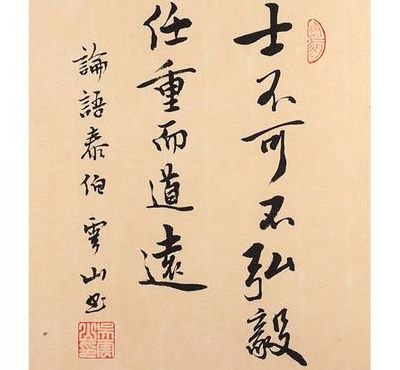 士不可不弘毅
任重而道遠
論語泰伯 雲山書